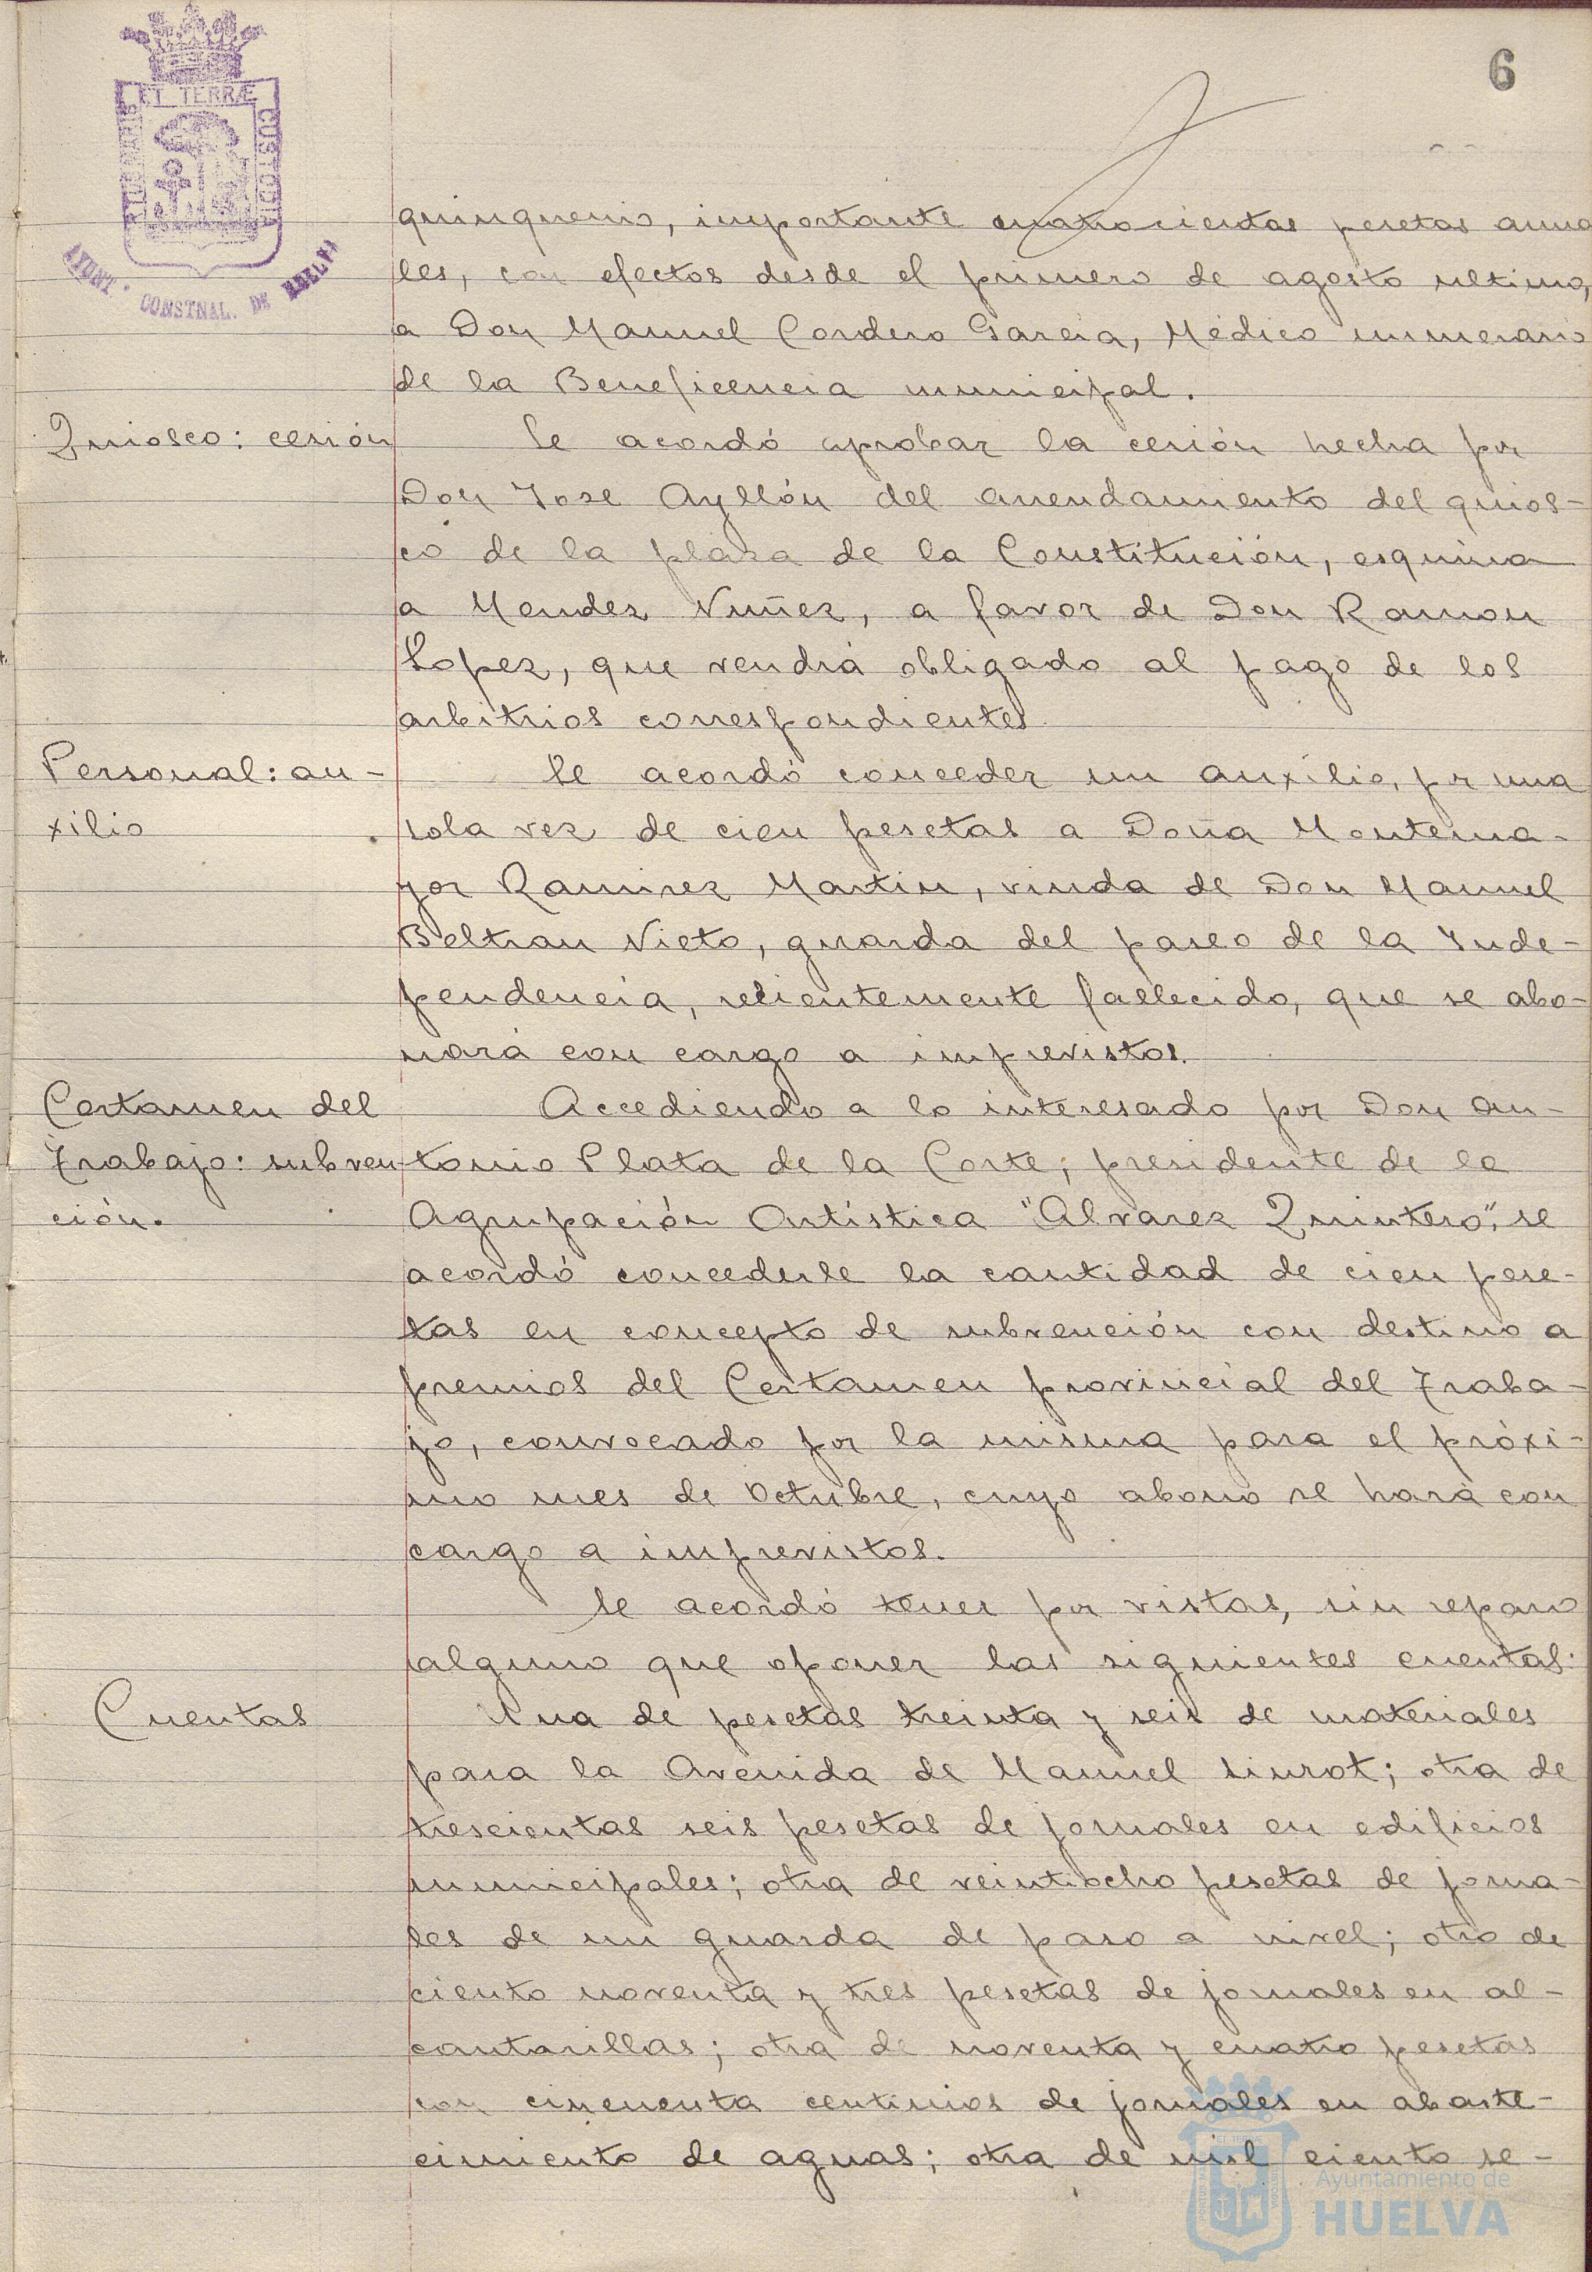 6
ET TERRÆ
CUSTODIA
AYUNT. CONSTNAL. DE HUELVA
quinquenio, importante cuatrocientas pesetas anua
les, con efectos desde el primero de agosto ultimo,
a Don Manuel Cordero Garcia, Médico numerario
de la Beneficencia municipal.
Quiosco: cesión
Se acordó aprobar la cesión hecha por
Don Jose Ayllón del arrendamiento del quios-
co de la plaza de la Constitución, esquina
a Mendez Nuñez, a favor de Don Ramon
Lopez, que vendrá obligado al pago de los
arbitrios correspondientes.
Personal: au-
xilio
Se acordó conceder un auxilio, por una
sola vez de cien pesetas a Doña Montema-
yor Ramirez Martin, viuda de Don Manuel
Beltran Nieto, guarda del paseo de la Inde-
pendencia, recientemente fallecido, que se abo-
nará con cargo a imprevistos.
Certamen del
Trabajo: subven-
ción.
Accediendo a lo interesado por Don An-
tonio Plata de la Corte; presidente de la
Agrupación Artística "Alvarez Quintero", se
acordó concederle la cantidad de cien pese-
tas en concepto de subvención con destino a
premios del Certamen provincial del Traba-
jo, convocado por la misma para el próxi-
mo mes de Octubre, cuyo abono se hará con
cargo a imprevistos.
Se acordó tener por vistas, sin reparo
alguno que oponer las siguientes cuentas:
Cuentas
Una de pesetas treinta y seis de materiales
para la Avenida de Manuel Siurot; otra de
trescientas seis pesetas de jornales en edificios
municipales; otra de veintiocho pesetas de jorna-
les de un guarda de paso a nivel; otro de
ciento noventa y tres pesetas de jornales en al-
cantarillas; otra de noventa y cuatro pesetas
con cincuenta centimos de jornales en abaste-
cimiento de aguas; otra de mil ciento se-
Ayuntamiento de
HUELVA